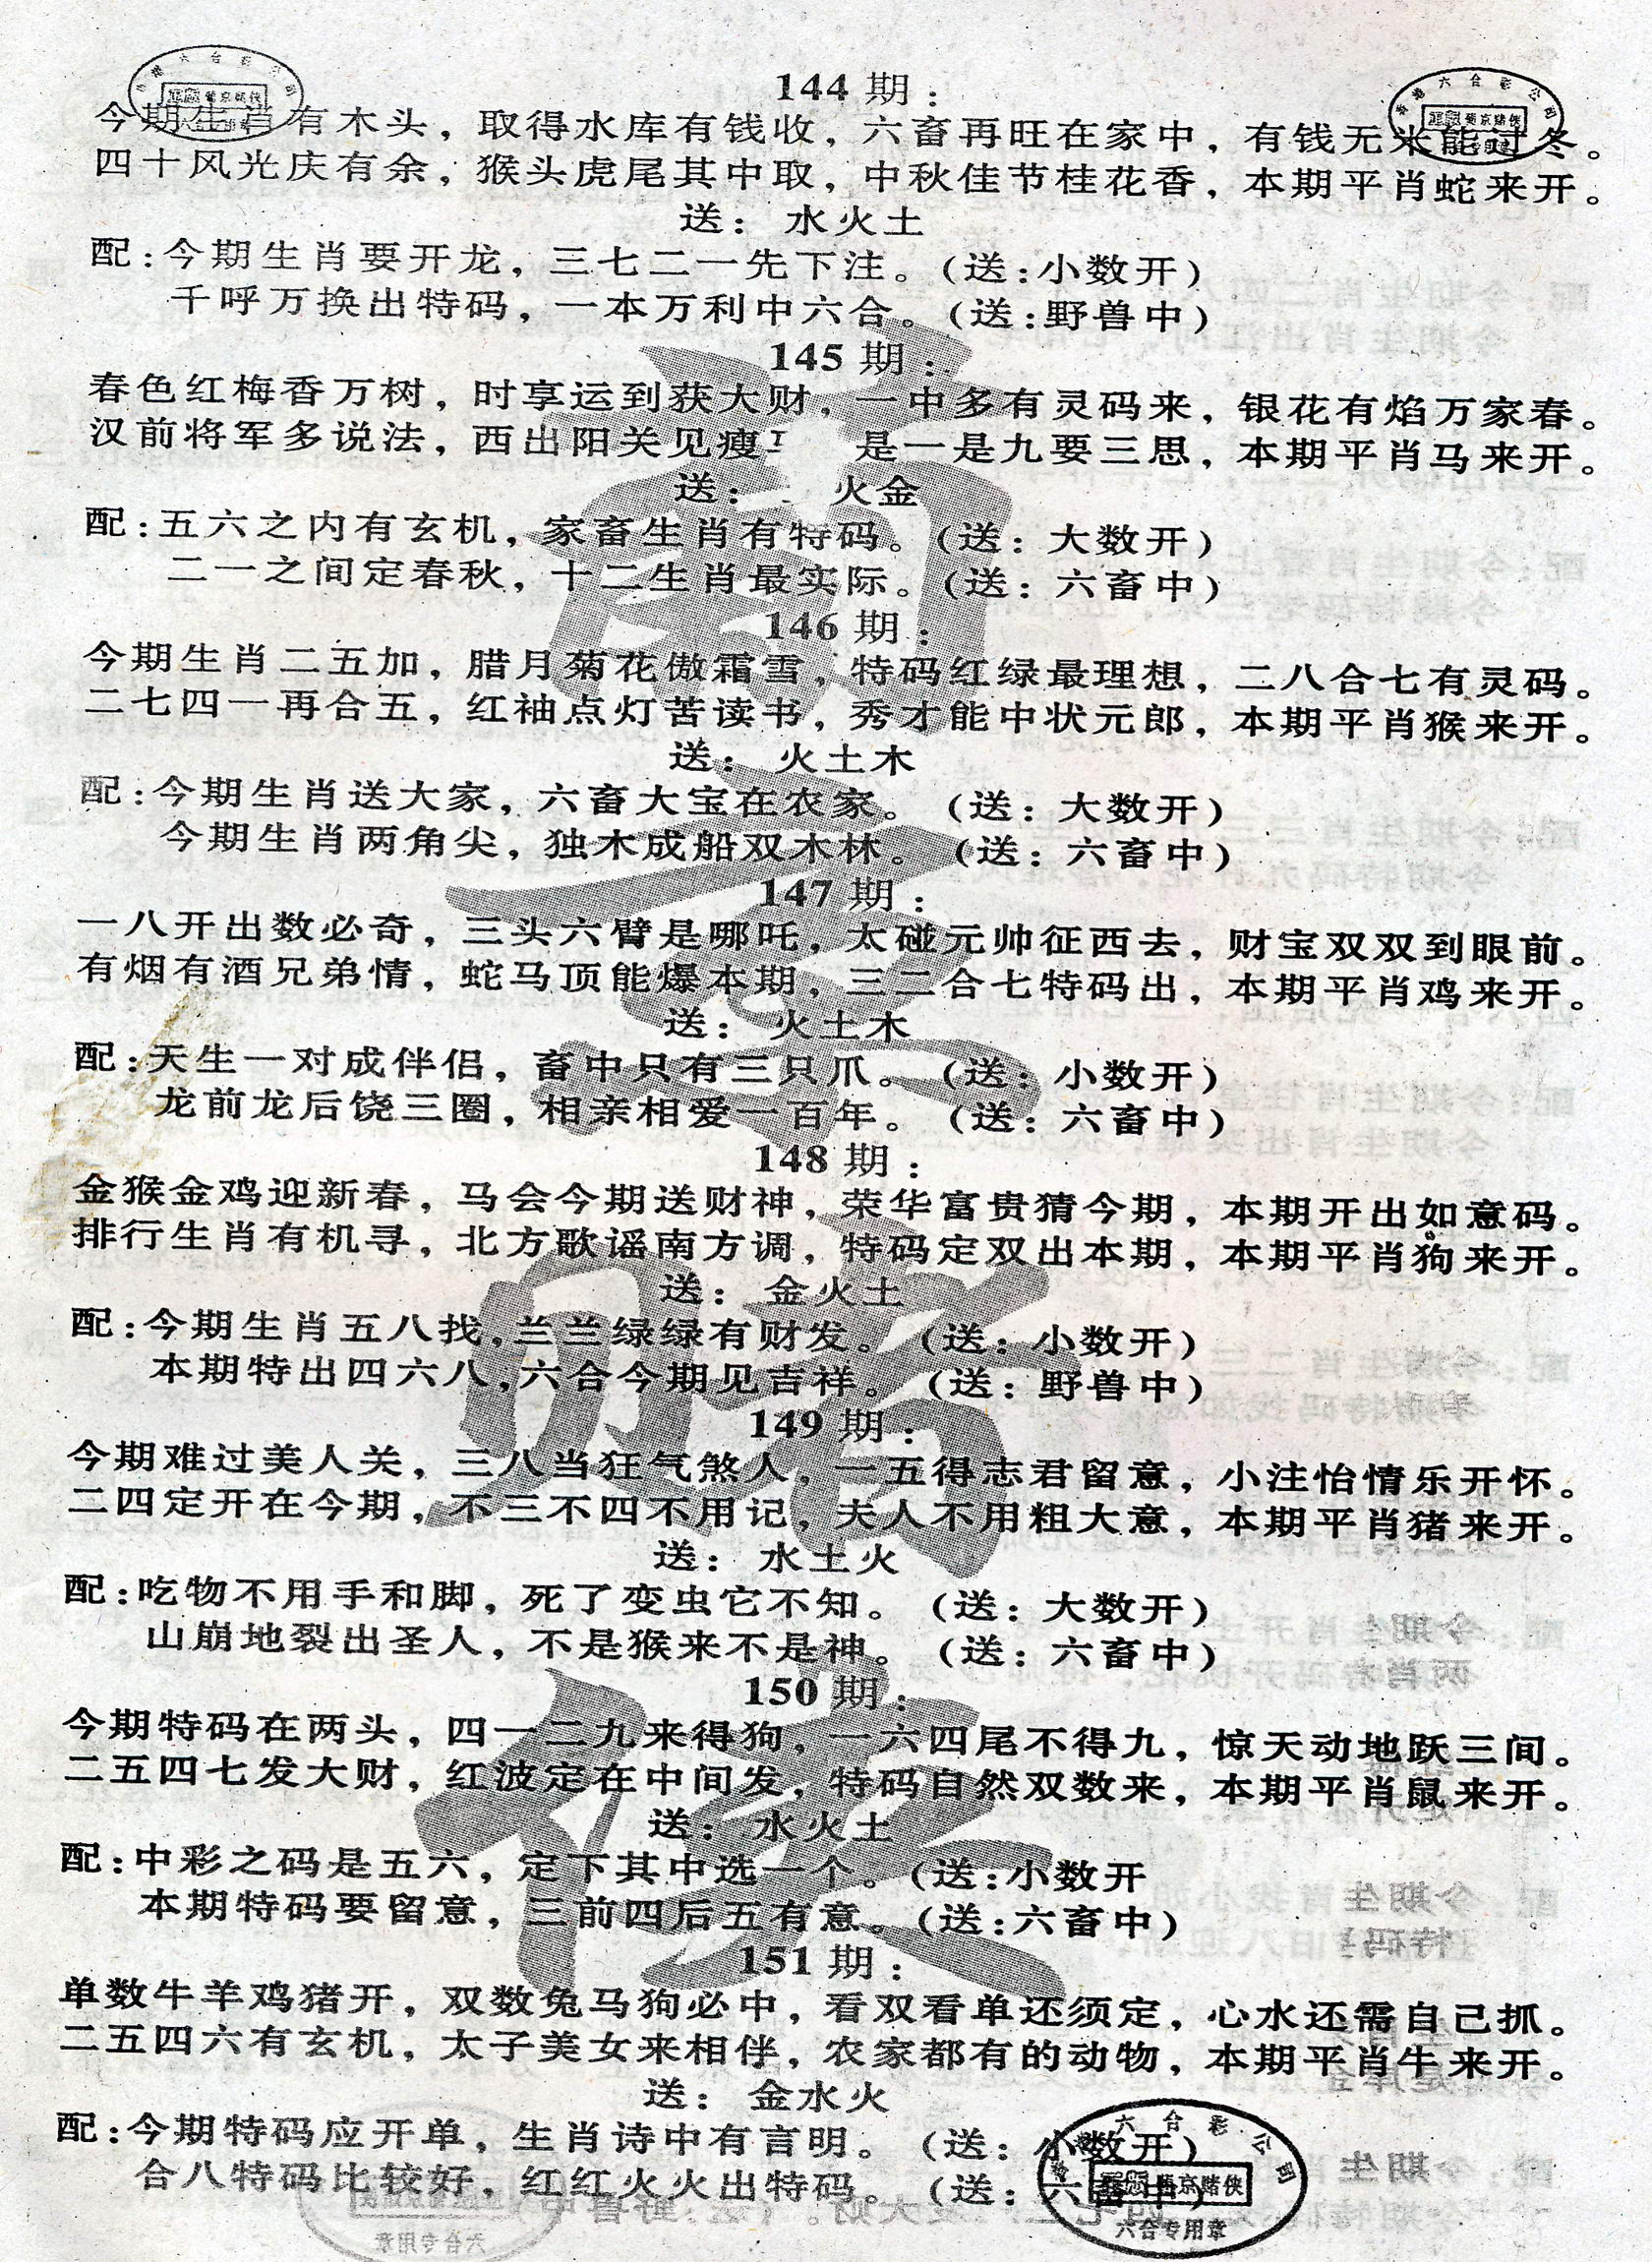 144期：
今期生肖有木头，取得水库有钱收，六畜再旺在家中，有钱无米能过冬。
四十风光庆有余，猴头虎尾其中取，中秋佳节桂花香，本期平肖蛇来开。
送：水火土
配：今期生肖要开龙，三七二一先下注。（送：小数开）
千呼万换出特码，一本万利中六合。（送：野兽中）
145期：
春色红梅香万树，时享运到获大财，一中多有灵码来，银花有焰万家春。
汉前将军多说法，西出阳关见瘦 是一是九要三思，本期平肖马来开。
送： 火金
配：五六之内有玄机，家畜生肖有特码。（送：大数开）
二一之间定春秋，十二生肖最实际。（送：六畜中）
146期：
今期生肖二五加，腊月菊花傲霜雪，特码红绿最理想，二八合七有灵码。
二七四一再合五，红袖点灯苦读书，秀才能中状元郎，本期平肖猴来开。
送：火土木
配：今期生肖送大家，六畜大宝在农家。（送：大数开）
今期生肖两角尖，独木成船双木林。（送：六畜中）
147期：
一八开出数必奇，三头六臂是哪吒，太碰元帅征西去，财宝双双到眼前。
有烟有酒兄弟情，蛇马顶能爆本期，三二合七特码出，本期平肖鸡来开。
送：火土木
配：天生一对成伴侣，畜中只有三只爪。（送：小数开）
龙前龙后饶三圈，相亲相爱一百年。（送：六畜中）
148期：
金猴金鸡迎新春，马会今期送财神，荣华富贵猜今期，本期开出如意码。
排行生肖有机寻，北方歌谣南方调，特码定双出本期，本期平肖狗来开。
送：金火土
配：今期生肖五八找，兰兰绿绿有财发。（送：小数开）
本期特出四六八，六合今期见吉祥。（送：野兽中）
149期：
今期难过美人关，三八当狂气煞人，一五得志君留意，小注怡情乐开怀。
二四定开在今期，不三不四不用记，夫人不用粗大意，本期平肖猪来开。
送：水土火
配：吃物不用手和脚，死了变虫它不知。（送：大数开）
山崩地裂出圣人，不是猴来不是神。（送：六畜中）
150期：
今期特码在两头，四一二九来得狗，一六四尾不得九，惊天动地跃三间。
二五四七发大财，红波定在中间发，特码自然双数来，本期平肖鼠来开。
送：水火土
配：中彩之码是五六，定下其中选一个。（送：小数开
本期特码要留意，三前四后五有意。（送：六畜中）
151期：
单数牛羊鸡猪开，双数兔马狗必中，看双看单还须定，心水还需自己抓。
二五四六有玄机，太子美女来相伴，农家都有的动物，本期平肖牛来开。
送：金水火
配：今期特码应开单，生肖诗中有言明。（送：小数开）
合八特码比较好，红红火火出特码。（送：六畜中）
六合彩公司
葡京赌侠
六合专用章